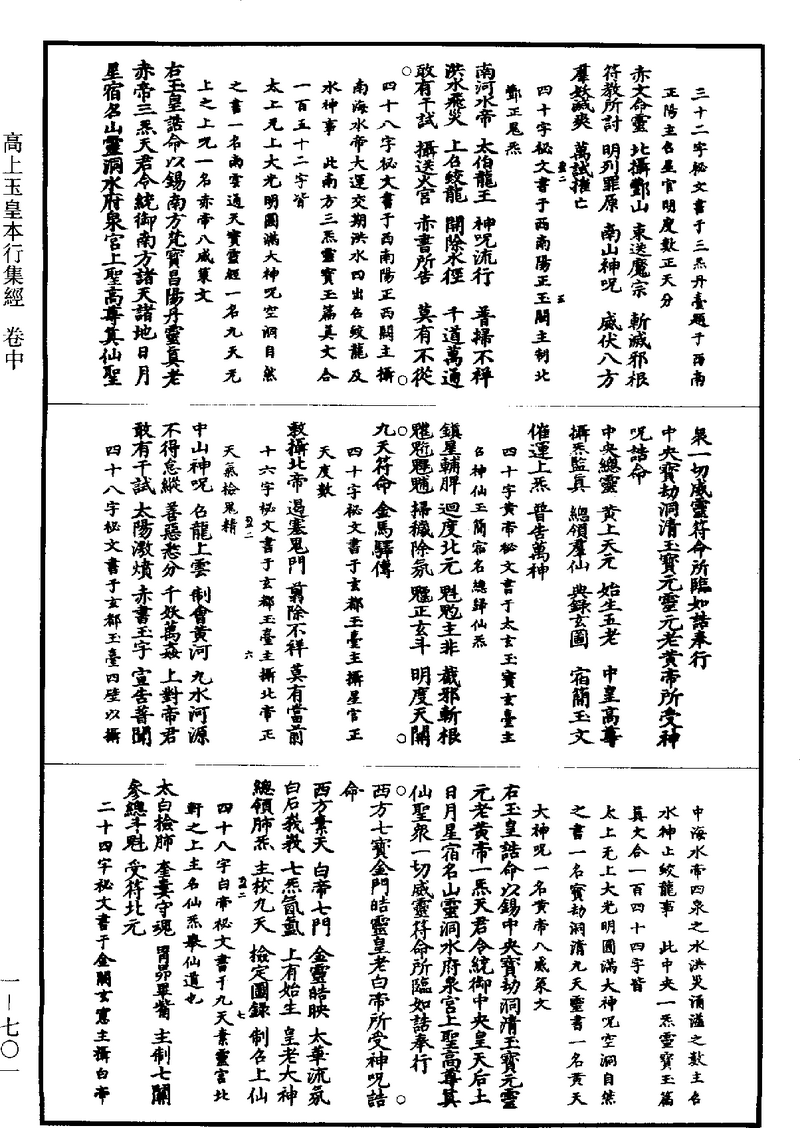 高上玉皇本行集經　卷中
三十二字秘文書于三炁丹臺題于西南
正陽主召星官明度數正天分
赤文命靈　北攝酆山　束送魔宗　斬滅邪根
符教所討　明列罪原　南山神呪　威伏八方
羣妖滅爽　萬試摧亡
四十字秘文書于西南陽正玉闕主制北
酆正鬼炁
南河水帝　太伯龍王　神呪流行　普掃不祥
洪水飛災　上召蛟龍　開除水徑　千道萬通
敢有干試　攝送火宮　赤書所告　莫有不從
四十八字秘文書于西南陽正西闕主攝
南海水帝大運交期洪水四出召蛟龍及
水神事　此南方三炁靈寶玉篇真文合
一百五十二字皆
太上无上大光明圓滿大神呪空洞自然
之書一名南雲通天寶靈經一名九天元
上之上呪一名赤帝八威策文
右玉皇誥命以錫南方梵寶昌陽丹靈真老
赤帝三炁天君令統御南方諸天諸地日月
星宿名山靈洞水府泉宮上聖高尊真仙聖
衆一切威靈符命所臨如誥奉行
中央寶劫洞清玉寶元靈元老黃帝所受神
呪誥命
中央總靈　黃上天元　始生五老　中皇高尊
攝炁監真　總領羣仙　典錄玄圖　宿簡玉文
催運上炁　普告萬神
四十字黃帝秘文書于太玄玉寶玄臺主
召神仙玉簡宿名總歸仙炁
鎮星輔脾　迴度北元　魁䰢主非　截邪斬根
掃穢除氛　正玄斗　明度天關
九天符命　金馬驛傳
四十字秘文書于玄都玉臺主攝星官正
天度數
敕攝北帝　遏塞鬼門　翦除不祥　莫有當前
十六字秘文書于玄都玉臺主攝北帝正
天氣檢鬼精
中山神呪　召龍上雲　制會黃河　九水河源
不得怠縱　善惡悉分　千妖萬姦　上對帝君
敢有干試　太陽激憤　赤書玉字　宣告普聞
四十八字秘文書于玄都玉臺四壁以攝
中海水帝四泉之水洪災涌溢之數主召
水神上蛟龍事　此中央一炁靈寶玉篇
真文合一百四十四字皆
太上无上大光明圓滿大神呪空洞自然
之書一名寶劫洞清九天靈書一名黃天
大神呪一名黃帝八威策文
右玉皇誥命以錫中央寶劫洞清玉寶元靈
元老黃帝一炁天君令統御中央皇天后土
日月星宿名山靈洞水府泉宮上聖高尊真
仙聖衆一切威靈符命所臨如誥奉行
西方七寶金門皓靈皇老白帝所受神呪誥
命
西方素天　白帝七門　金靈皓映　太華流氛
白石峩峩　七炁氤氳　上有始生　皇老大神
總領肺炁　主校九天　檢定圖錄　制召上仙
四十八字白帝秘文書于九天素靈宮北
軒之上主名仙炁舉仙道也
太白檢肺　奎婁守魂　胃昴畢觜　主制七關
參總斗魁　受符北元
二十四字秘文書于金闕玄窻主攝白帝
一－七〇一